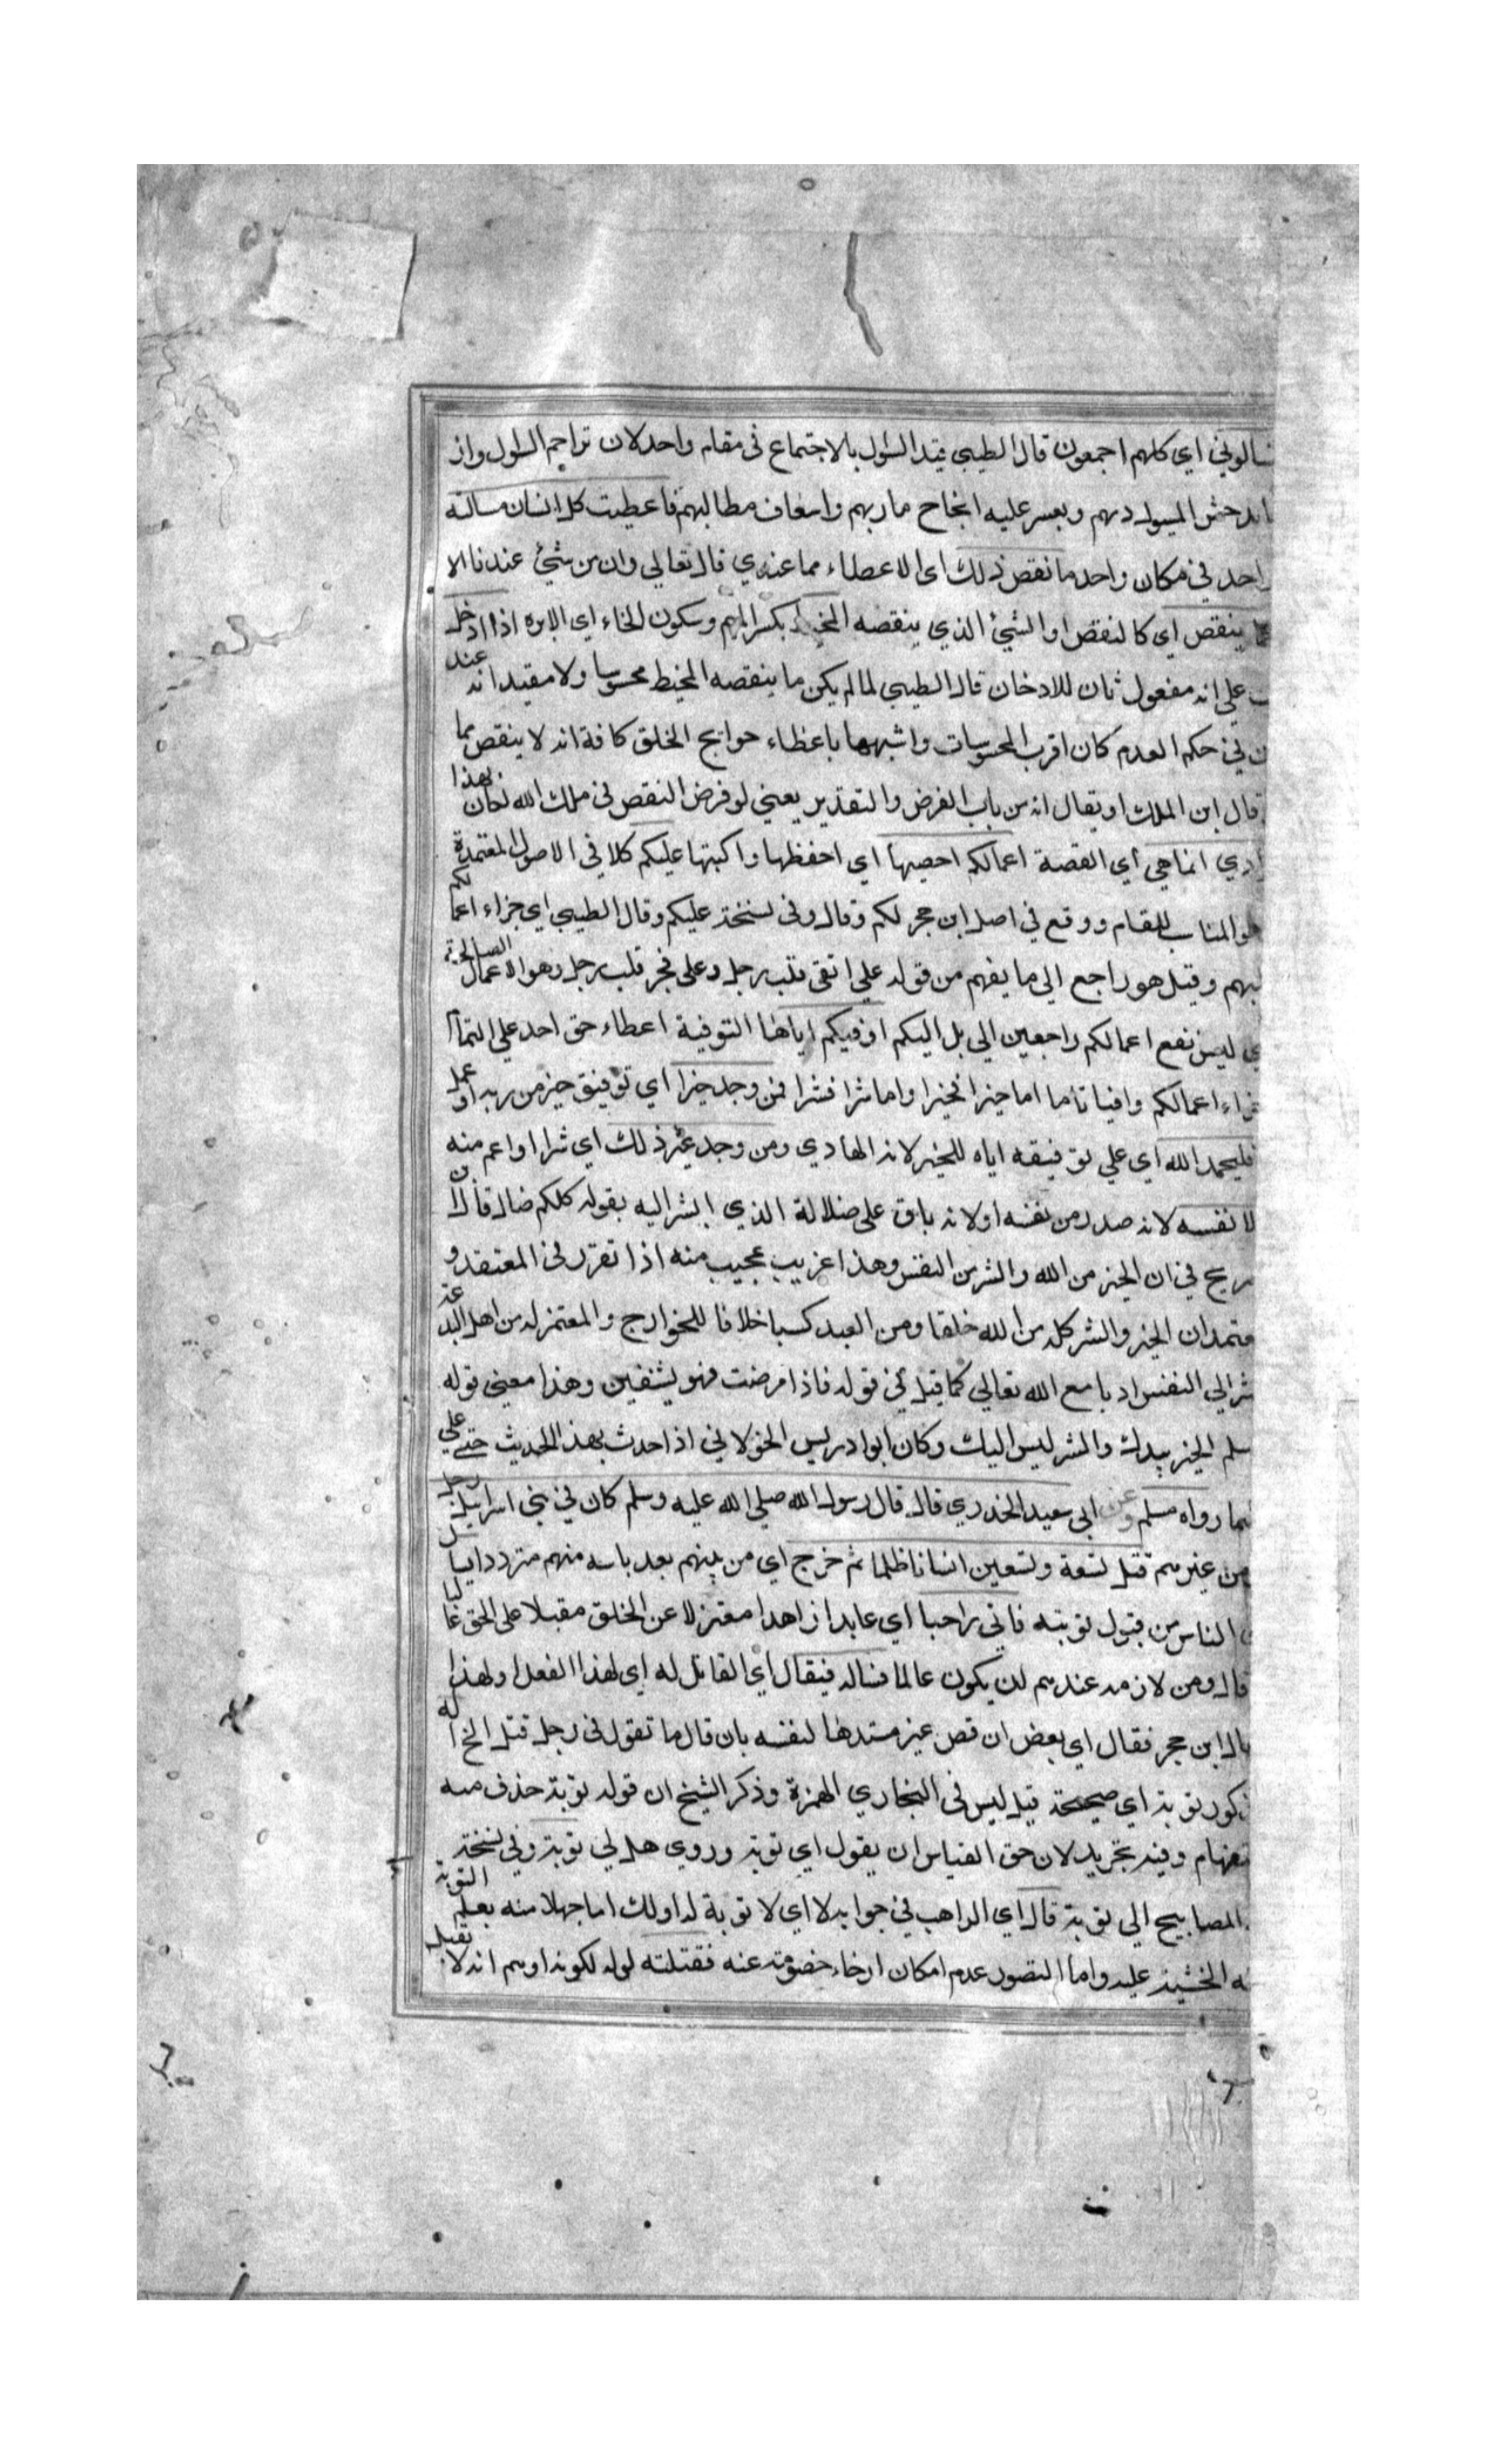 سالوني اي كلهم اجمعون قال الطيبي قيد السؤل بالاجتماع في مقام واحد لان تراجم السؤل واز
المسول دهم وبعسر عليه انجاح ماربهم واسعاف مطالبهم فاعطيت كل انسان مسالته
واحد في مكان واحد ما نقص ذلك اى الاعطاء مما عندي قال تعالي وان من شئ عندنا الا
ينقص اي كالنقص او الشئ الذي ينقصه المخيط بكسر الميم وسكون الخاء اي الابره اذا ادخل
علي انه مفعول ثان للادخان قال الطيبي لما لم يكن ما ينقصه المخيط محسوسا ولا مقيدا انه عند
في حكم العدم كان اقرب المحسوسات واشبهها باعظاء حوايج الخلق كافة انه لا ينقص مما
قال ابن الملك او يقال انه من باب الفرض والتقدير يعني لو فرض النقص في ملك الله لكان بهذا
انما هي اي القصة اعمالكم احصيها اي احفظها واكبتها عليكم كلا في الاصول المعتمدة
هو المناسب للمقام ووقع في اصل ابن حجر لكم وقال وفى نسخة عليكم وقال الطيبي اي جزاء اعمالكم
وقيل هو راجع الي ما يفهم من قوله علي اتقى قلب رجل وعلى فجر قلب رجل وهو الاعمال الصالحة
ليس نفع اعمالكم راجعين الي بل اليكم اوفيكم اياها التوفية اعطاء حق احد علي التمام
اعمالكم وافيا تاما اما خيرا فخيرا واما شرا فشرا فمن وجد خيرا اي توفيق خير من ربه او عمل
فليحمد الله اي علي توفيقه اياه للخير لانه الهادي ومن وجد غير ذلك اي شرا او اعم منه
الا نفسه لانه صدر من نفسه اولانه باق على ضلالة الذي اشر اليه بقوله كلكم ضال قال
ريح في ان الخير من الله والشر من النفس وهذا غريب عجيب منه اذا تقرر في المعتقد و
ان الخير والشر كله من الله خلقا ومن العبد كسبا خلافا للخوارج والمعتزله من اهل البدعة
الي النفس ادبا مع الله تعالي كما قيل في قوله فاذا مرضت فهو يشفين وهذا معني قوله
سلم الخير بيدك والشر ليس اليك وكان ابوا دريس الخولاني اذا حدث بهذ الحديث جثي علي
رواه مسلم وعن ابي سعيد الخدري قال قال رسول الله صلي الله عليه وسلم كان في بني اسرايل رجل
من غيرهم قتل تسعة وتسعين انسانا ظلما ثم خرج اي من بينهم بعد باسه منهم مترددا يسال
الناس من قبول توبته فاتي راهبا اي عابدا زاهدا معتزلا عن الخلق مقبلا على الحق غالبا
قال ومن لازمه عندهم لن يكون عالما فساله فيقال اي القاتل له اي لهذا الفعل او لهذا
قال ابن حجر فقال اي بعض ان قص غير مسندها لنفسه بان قال ما تقول في رجل قتل الخ اله
توبة اي صحيحة قيل ليس فى البخاري الهمزة وذكر الشيخ ان قوله توبة حذف منه
وفيه تجريد لان حق القياس ان يقول اي توبة وروي هل لي توبة وفي نسخة
المصابيح الي توبة قال اي الراهب في جوابه لا اي لا توبة له اولك اما جهلا منه بعلم التوبة
الخشية عليه واما التصور عدم امكان ارخاء خصومته عنه فقتلته لوله لكونه اوهم انه لا تقبل